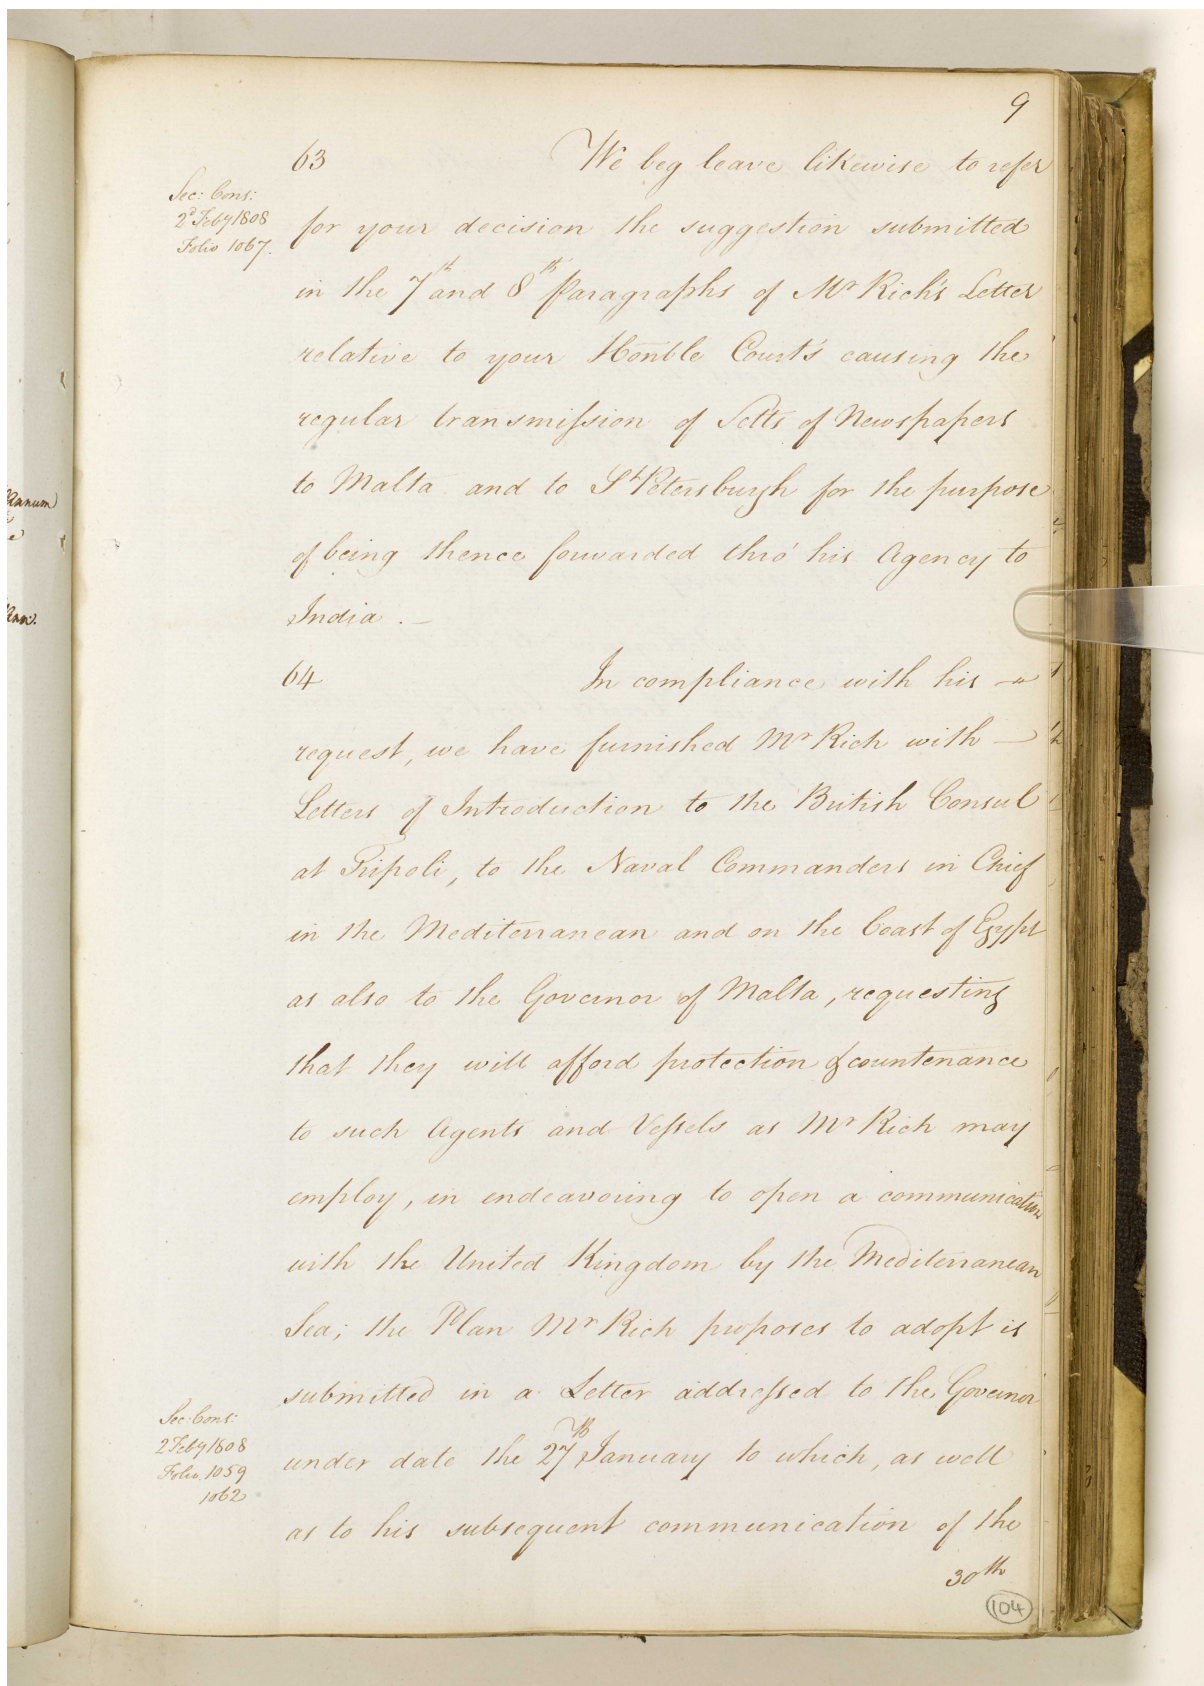 9
63 We beg leave likewise to refer
Sec: Cons:
2d Feby 1808
Folio 1067.
for your decision the suggestion submitted
in the 7th and 8th Paragraphs of Mr Rich's Letter
relative to your Honble Court's causing the
regular transmission of Setts of Newspapers
to Malta and to St Petersburgh for the purpose
of being thence forwarded thro' his Agency to
India . –
64 In compliance with his –
request, we have furnished Mr Rich with –
Letters of Introduction to the British Consul
at Tripoli, to the Naval Commanders in Chief
in the Mediterranean and on the Coast of Egypt
as also to the Governor of Malta, requesting
that they will afford protection & countenance
to such Agents and Vessels as Mr Rich may
employ, in endeavoring to open a communication
with the United Kingdom by the Mediterranean
Sea; the Plan Mr Rich proposes to adopt is
submitted in a Letter addressed to the Governor
Sec: Cons:
2 Feby 1808
Folio. 1059
1062
under date the 27th January to which, as well
as to his subsequent communication of the
30th
104
Annum
Ann.